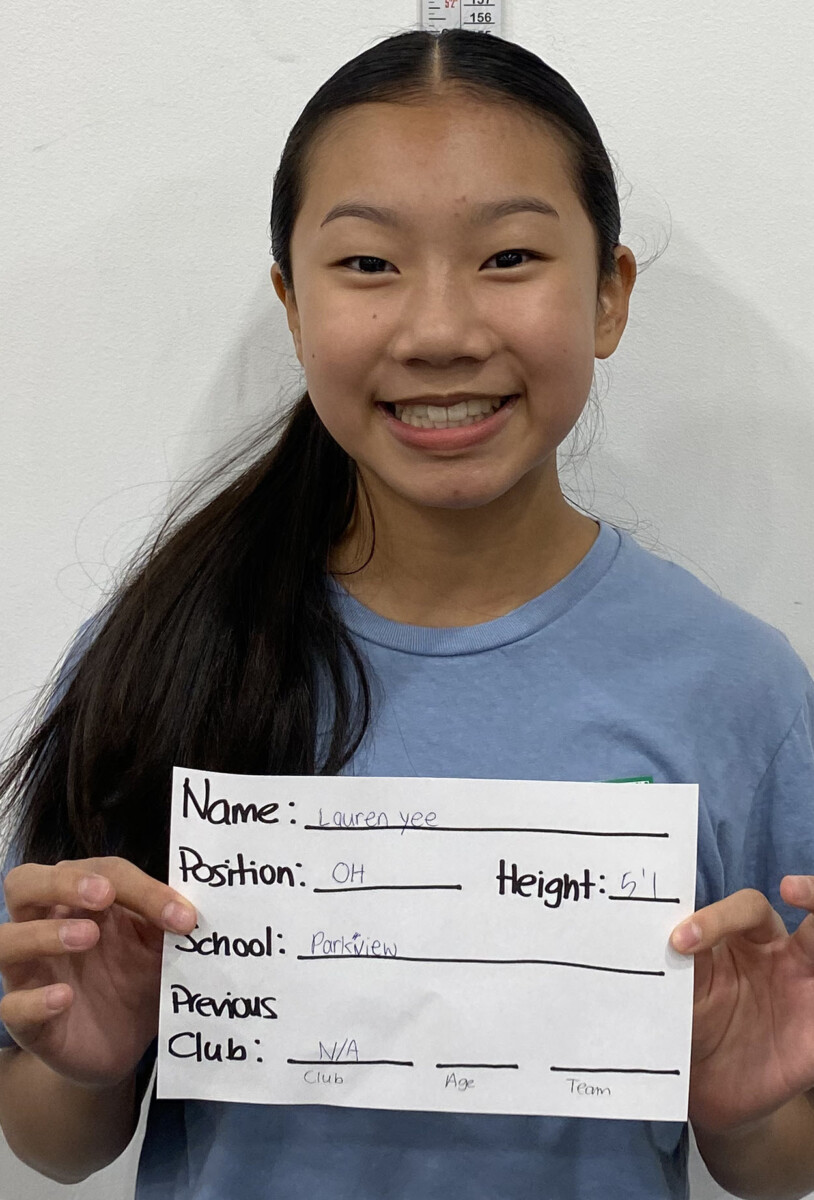 156
Name: Lauren yee
Position: OH Height: 5'1
School: Parkview
Previous
Club: N/A
Club Age Team